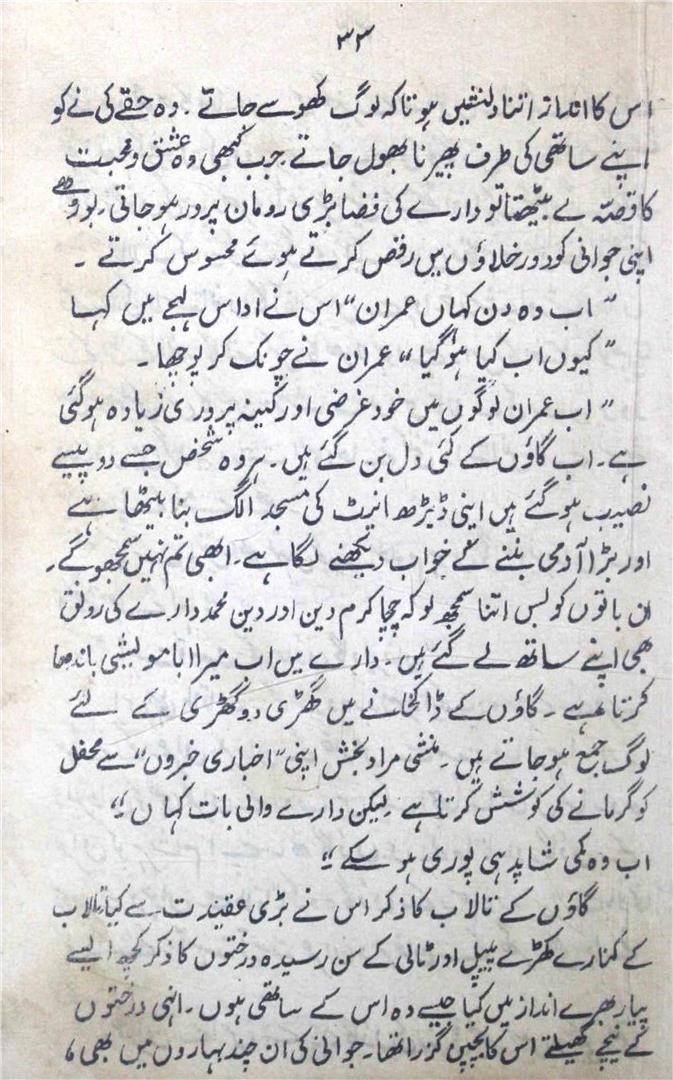 ۳۳
اس کا انداز اتنا دلنشیں ہوتا کہ لوگ کھو سے جاتے ۔ وہ حقے کی نے کو
اپنے ساتھی کی طرف پھیرنا بھول جاتے ۔ جب کبھی وہ عشق و محبت
کا قصّہ لے بیٹھتا تو دارے کی فضا بڑی رومان پرور ہو جاتی ۔ بوڑھے
اپنی جوانی کو دور خلاؤں میں رقص کرتے ہوئے محسوس کرتے ۔
" اب وہ دن کہاں عمران " اس نے اداس لہجے میں کہا
" کیوں اب کیا ہو گیا " عمران نے چونک کر پوچھا ۔
" اب عمران لوگوں میں خود غرضی اور کینہ پروری زیادہ ہو گئی
ہے ۔ اب گاؤں کے کئی دل بن گئے ہیں ۔ ہر وہ شخص جسے دو پیسے
نصیب ہو گئے ہیں اپنی ڈیڑھ اینٹ کی مسجد الگ بنا بیٹھا ہے
اور بڑا آدمی بننے کے خواب دیکھنے لگا ہے ۔ ابھی تم نہیں سمجھو گے ۔
ان باتوں کو بس اتنا سمجھ لو کہ چچا کرم دین اور دین محمد دارے کی رونق
بھی اپنے ساتھ لے گئے ہیں ۔ دارے میں اب میرا ابا مویشی باندھا
کرتا ہے ۔ گاؤں کے ڈاکخانے میں گھڑی دو گھڑی کے لئے
لوگ جمع ہو جاتے ہیں ۔ منشی مراد بخش اپنی " اخباری خبروں " سے محفل
کو گرمانے کی کوشش کرتا ہے ۔ لیکن دارے والی بات کہاں "
اب وہ کمی شاید ہی پوری ہو سکے "
گاؤں کے تالاب کا ذکر اس نے بڑی عقیدت سے کیا تالاب
کے کنارے کھڑے پیپل اور ٹالی کے سن رسیدہ درختوں کا ذکر کچھ ایسے
پیار بھرے انداز میں کیا جیسے وہ اس کے ساتھی ہوں ۔ انہی درختوں
کے نیچے کھیلتے اس کا بچپن گزرا تھا ۔ جوانی کی ان چند بہاروں میں بھی ،